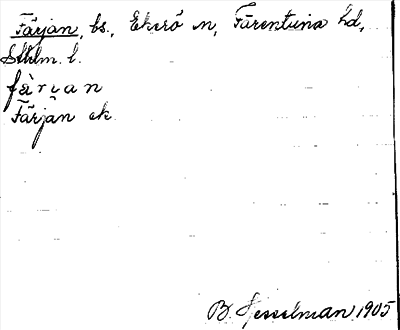 Färjan, bs., Ekerö sn, Färentuna hd,
Sthlm. l.
fàri̯an
Färjan ek
B. Hesselman 1905